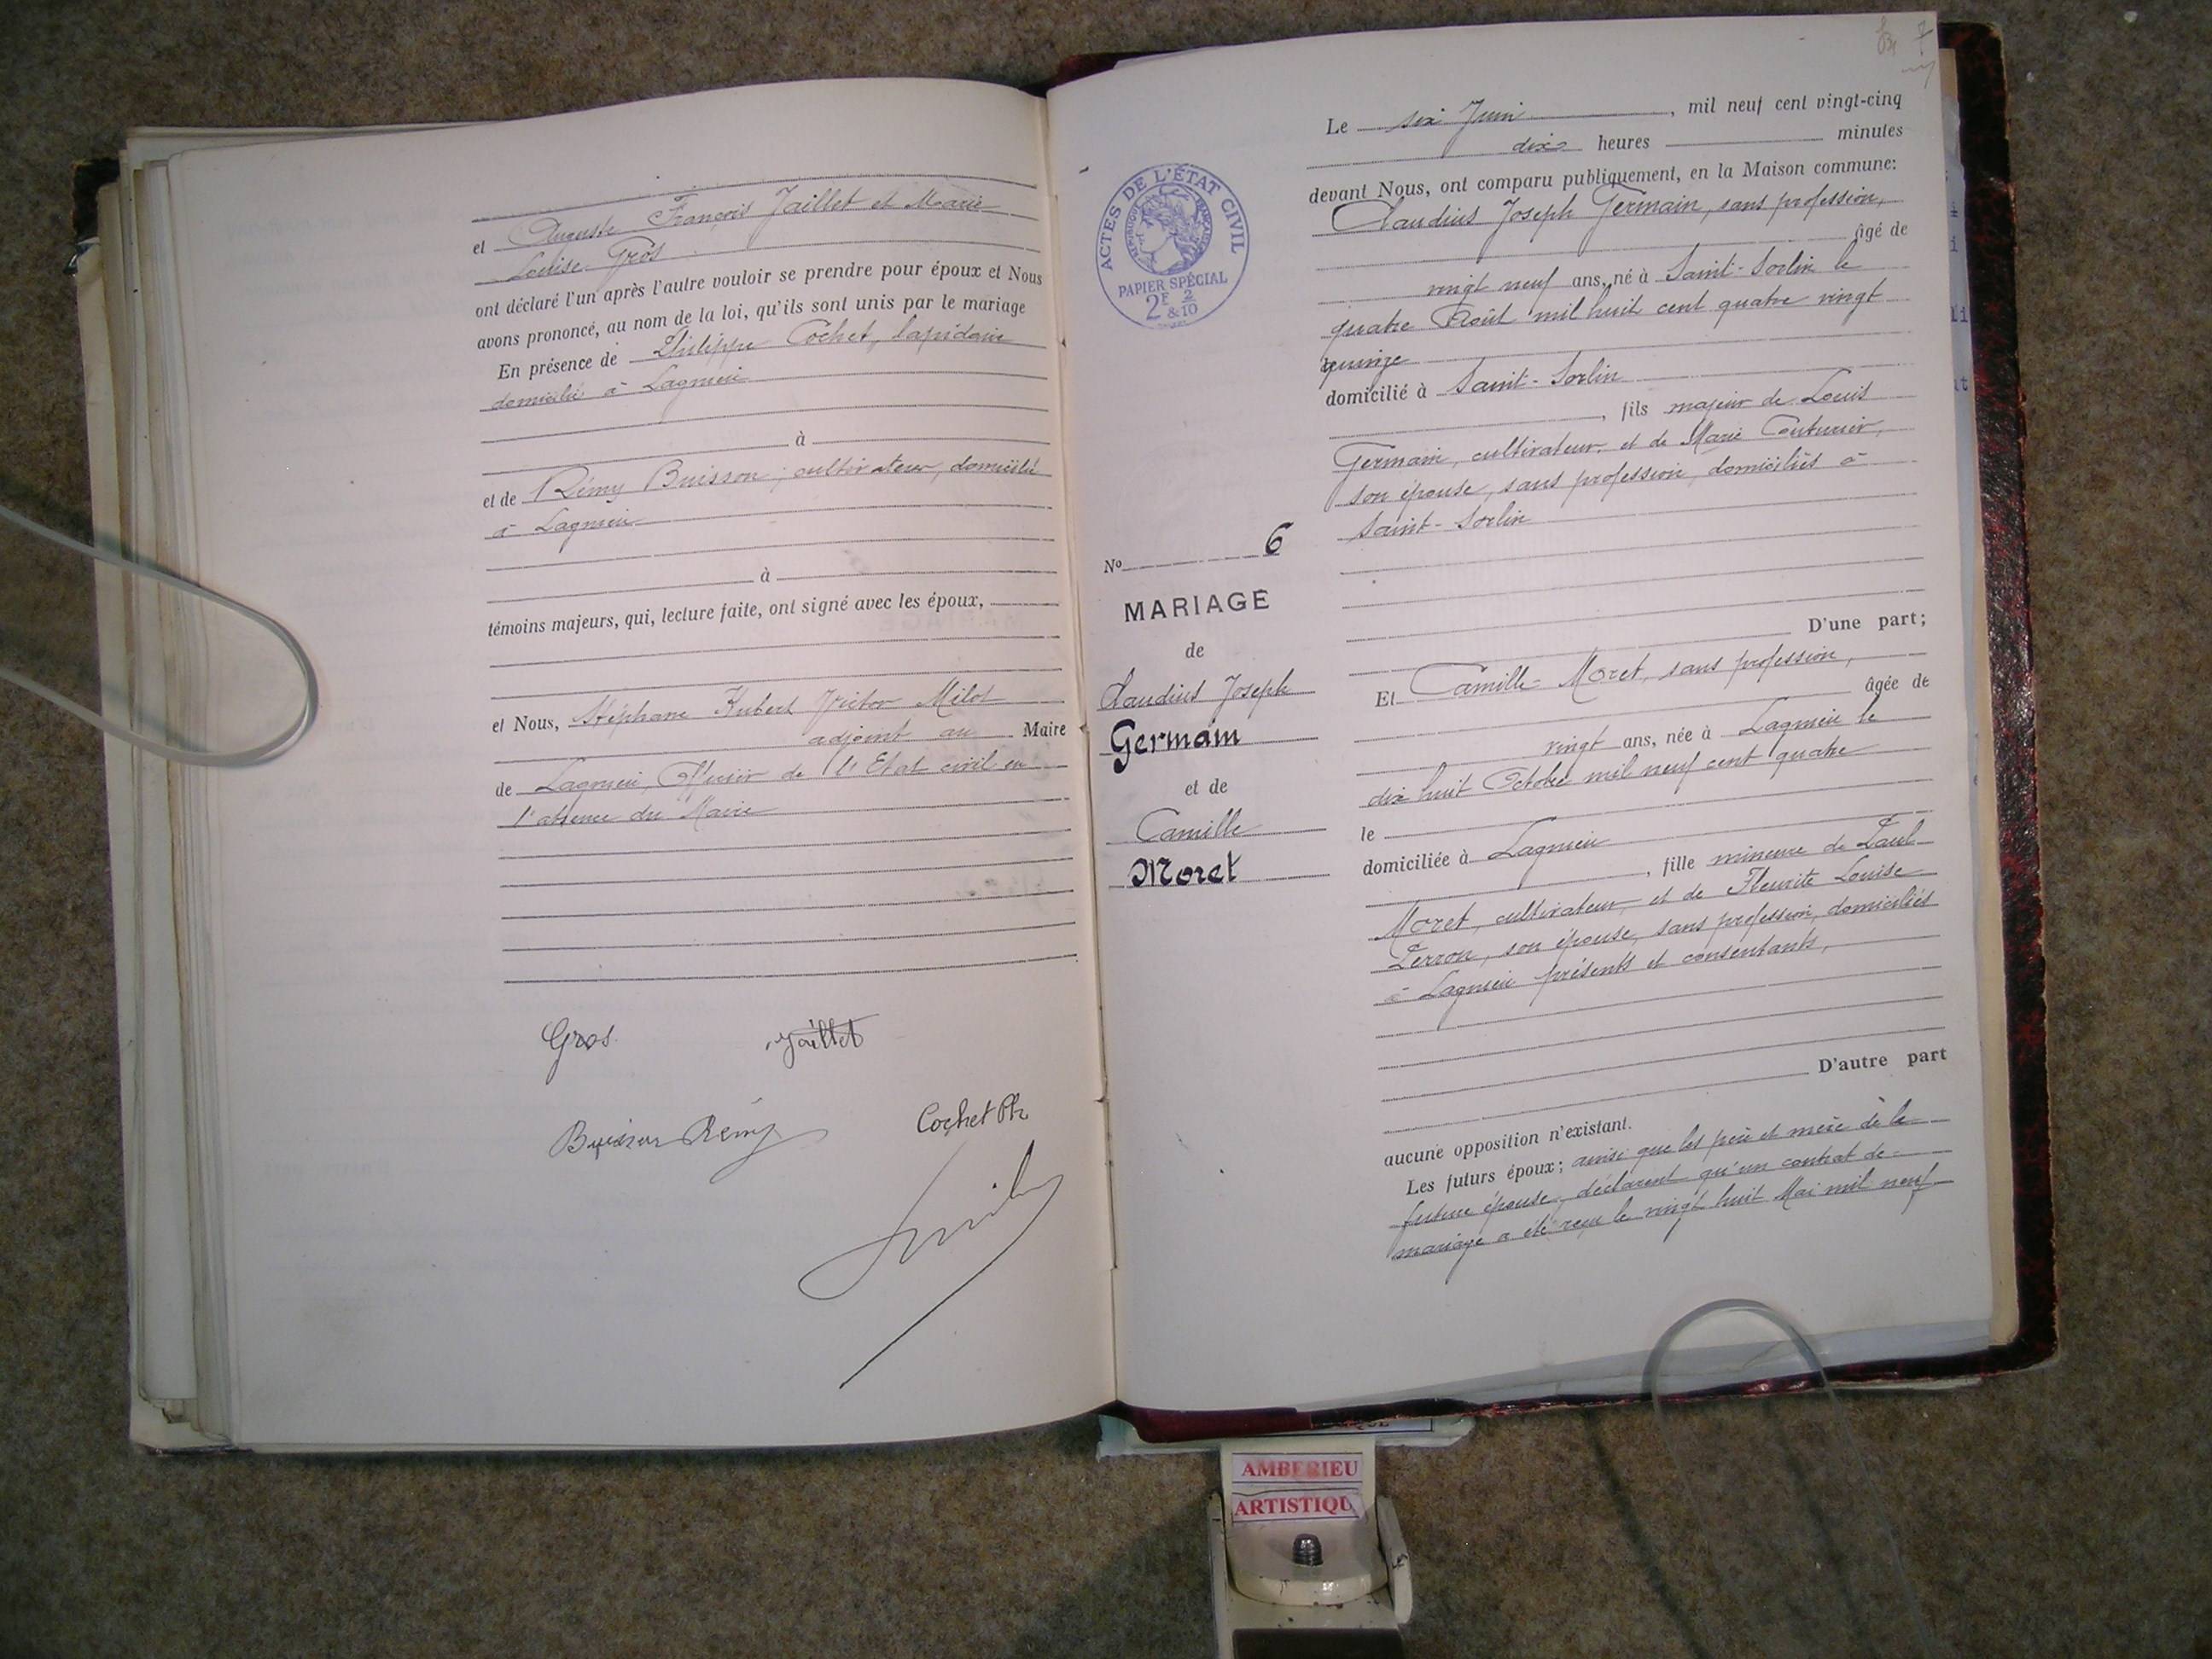 et Auguste François Jaillet et Marie
Louise Gros
ont déclaré l'un après l'autre vouloir se prendre pour époux et Nous
avons prononcé, au nom de la loi, qu'ils sont unis par le mariage
En présence de Philippe Cochet, lapidaire
domicilié à Lagnieu
à
et de Rémy Buisson, cultivateur, domicilié
à Lagnieu
à
témoins majeurs, qui, lecture faite, ont signé avec les époux,
et Nous, Stéphane Hubert Victor Milot
adjoint au Maire
de Lagnieu, Officier de l'Etat civil en
l'absence du Maire
Gros Jaillet
Buisson Rémy Cochet Ph
ACTES DE L'ÉTAT CIVIL
RÉPUBLIQUE FRANÇAISE
PAPIER SPÉCIAL
2F 2
&10
No 6
MARIAGE
de
Claudius Joseph
Germain
et de
Camille
Moret
Le six Juin, mil neuf cent vingt-cinq
dix heures minutes
devant Nous, ont comparu publiquement, en la Maison commune:
Claudius Joseph Germain, sans profession,
âgé de
vingt neuf ans, né à Saint-Sorlin le
quatre Août mil huit cent quatre vingt
quinze
domicilié à Saint-Sorlin
, fils majeur de Louis
Germain, cultivateur, et de Marie Couturier,
son épouse, sans profession, domiciliés à
Saint-Sorlin
D'une part;
Et Camille Moret, sans profession,
âgée de
vingt ans, née à Lagnieu le
dix huit Octobre mil neuf cent quatre
le
domiciliée à Lagnieu
, fille mineure de Paul
Moret, cultivateur, et de Fleurite Louise
Perron, son épouse, sans profession, domiciliés
à Lagnieu présents et consentants,
D'autre part
aucune opposition n'existant.
Les futurs époux; ainsi que les père et mère de la
future épouse, déclarent qu'un contrat de
mariage a été reçu le vingt huit Mai mil neuf
AMBERIEU
ARTISTIQU